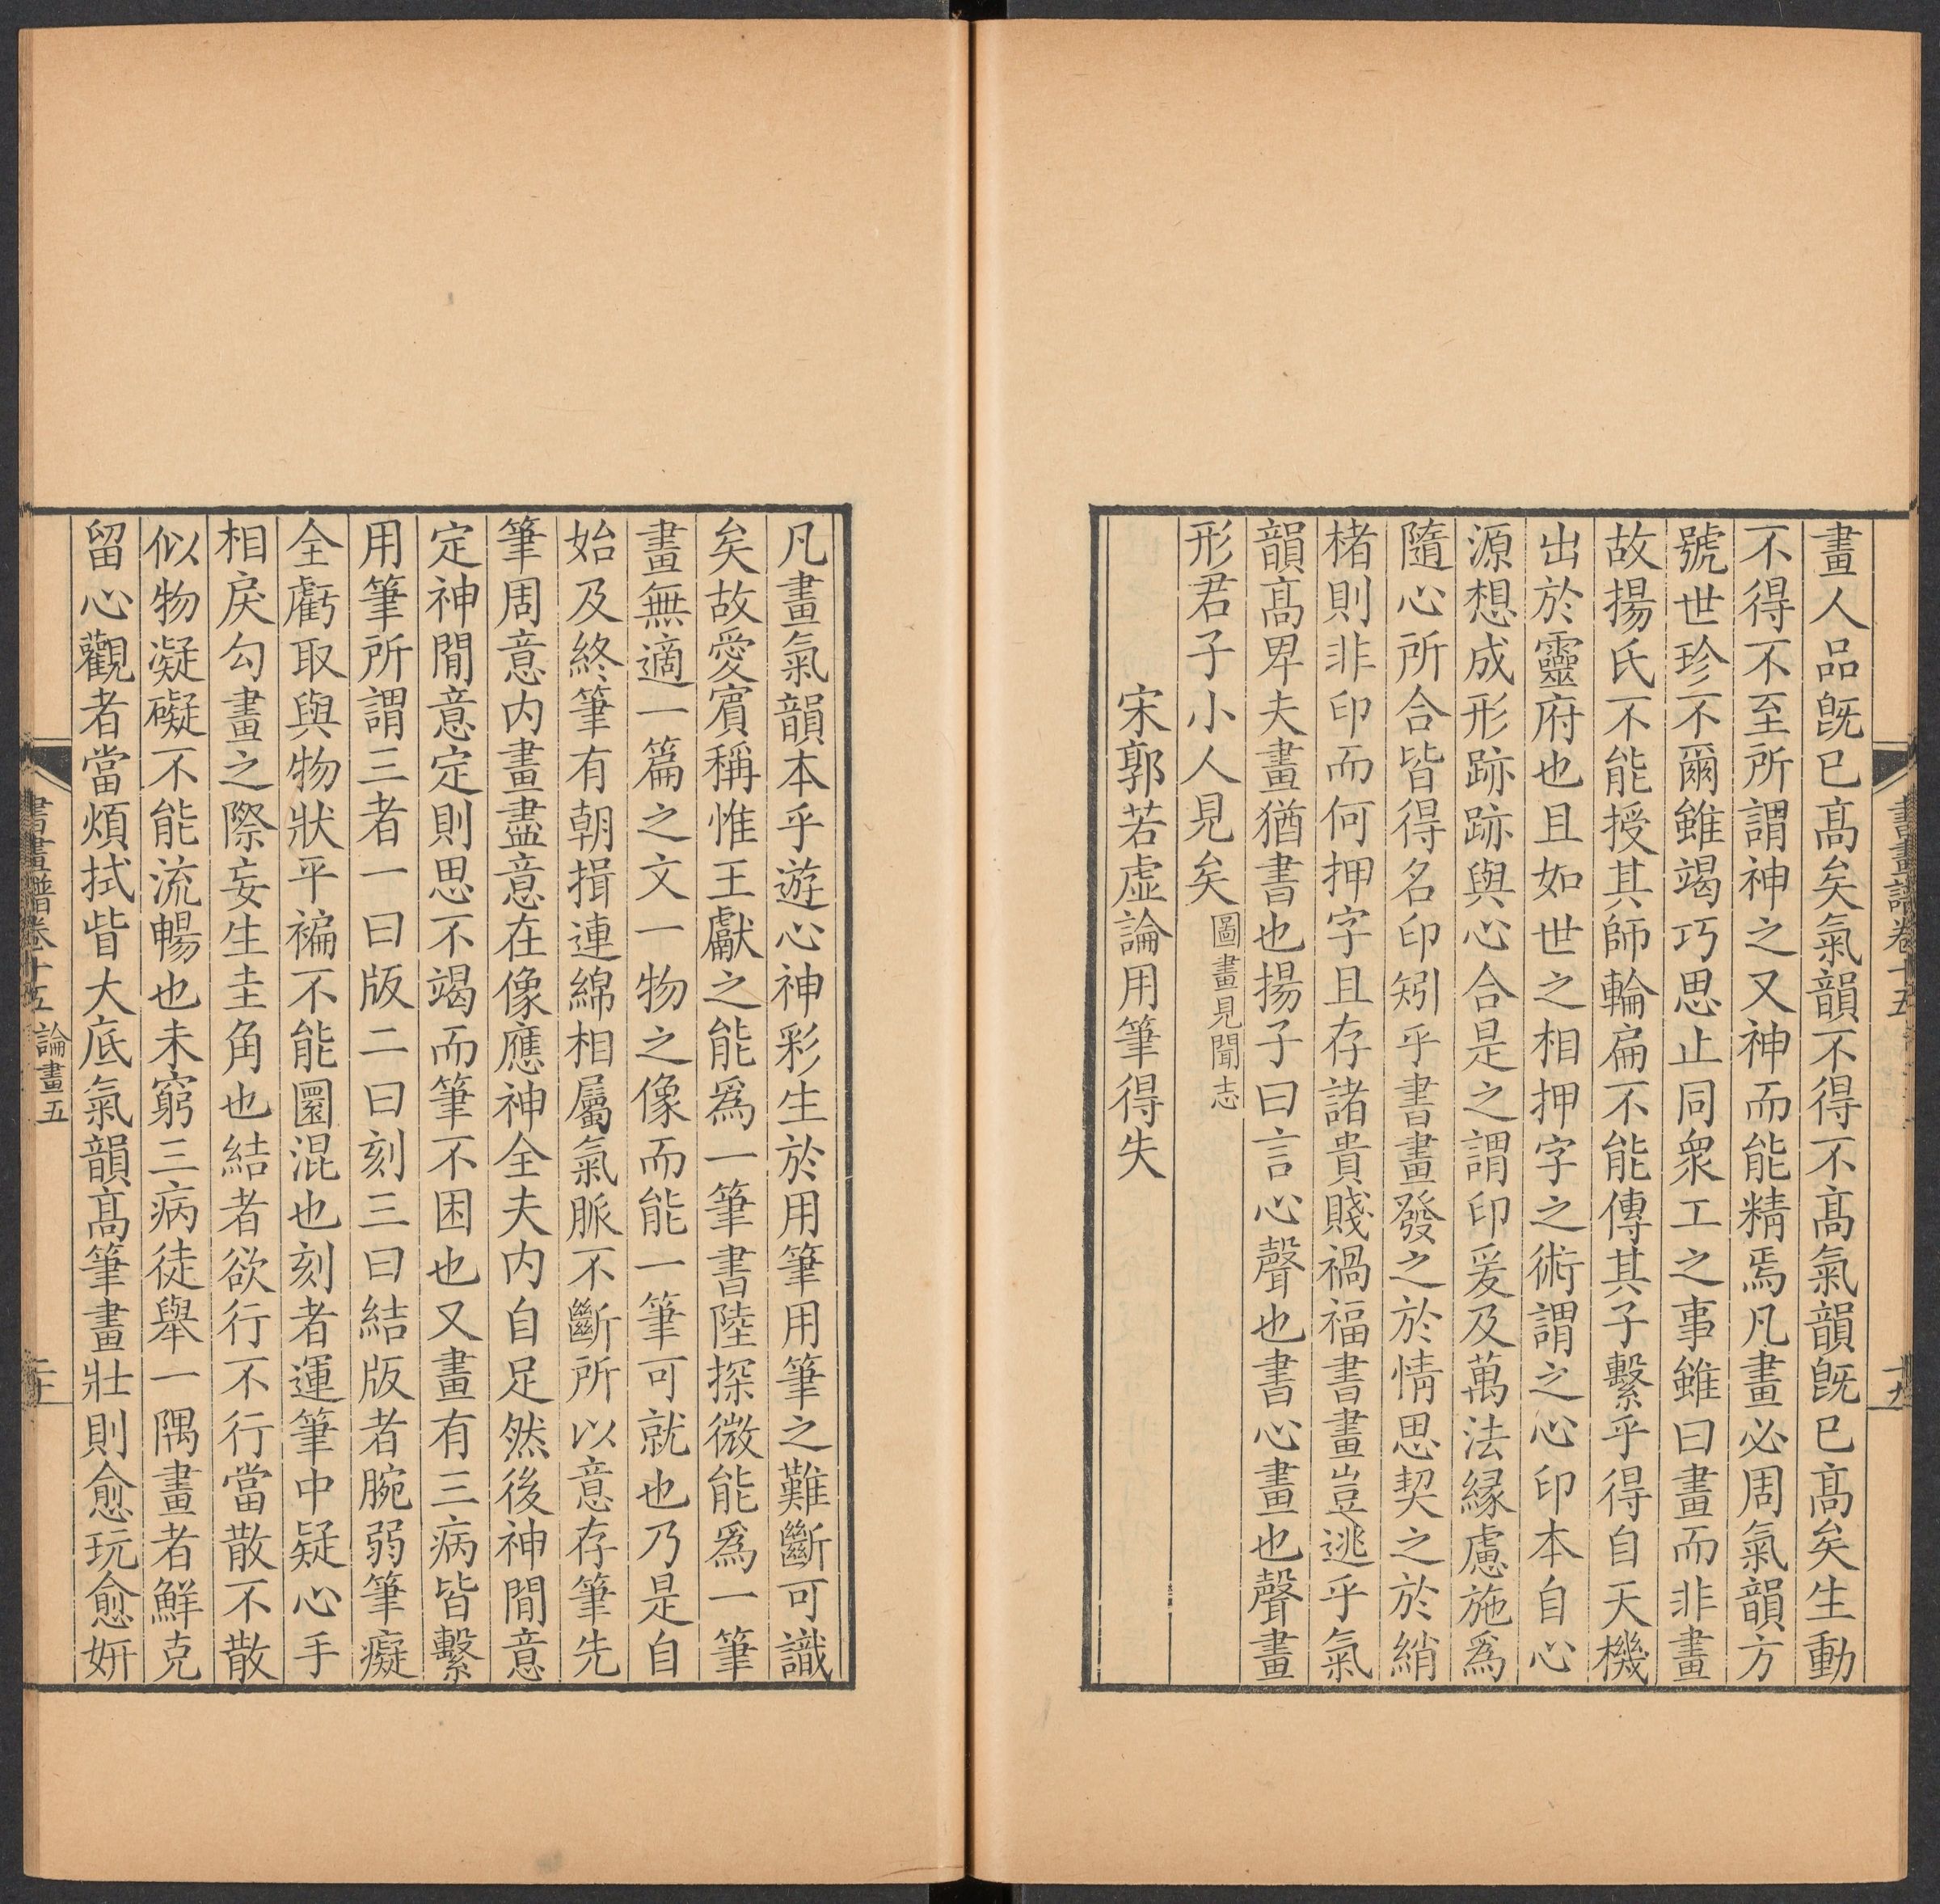 書畫譜卷十五
十九
畫人品旣已髙矣氣韻不得不髙氣韻旣已髙矣生動
不得不至所謂神之又神而能精焉凡畫必周氣韻方
號世珍不爾雖竭巧思止同衆工之事雖曰畫而非畫
故揚氏不能授其師輪扁不能傳其子繫乎得自天機
出於靈府也且如世之相押字之術謂之心印本自心
源想成形跡跡與心合是之謂印爰及萬法縁慮施爲
隨心所合皆得名印矧乎書畫發之於情思契之於綃
楮則非印而何押字且存諸貴賤禍福書畫豈逃乎氣
韻髙卑夫畫猶書也揚子曰言心聲也書心畫也聲畫
形君子小人見矣圖畫見聞志
宋郭若虛論用筆得失
凡畫氣韻本乎遊心神彩生於用筆用筆之難斷可識
矣故愛賓稱惟王獻之能爲一筆書陸探微能爲一筆
畫無適一篇之文一物之像而能一筆可就也乃是自
始及終筆有朝揖連綿相屬氣脈不斷所以意存筆先
筆周意内畫盡意在像應神全夫内自足然後神閒意
定神閒意定則思不竭而筆不困也又畫有三病皆繫
用筆所謂三者一曰版二曰刻三曰結版者腕弱筆癡
全虧取與物狀平褊不能圜混也刻者運筆中疑心手
相戾勾畫之際妄生圭角也結者欲行不行當散不散
似物凝礙不能流暢也未窮三病徒舉一隅畫者鮮克
留心觀者當煩拭眥大底氣韻髙筆畫壯則愈玩愈妍
書畫譜卷十五 論畫五
二十